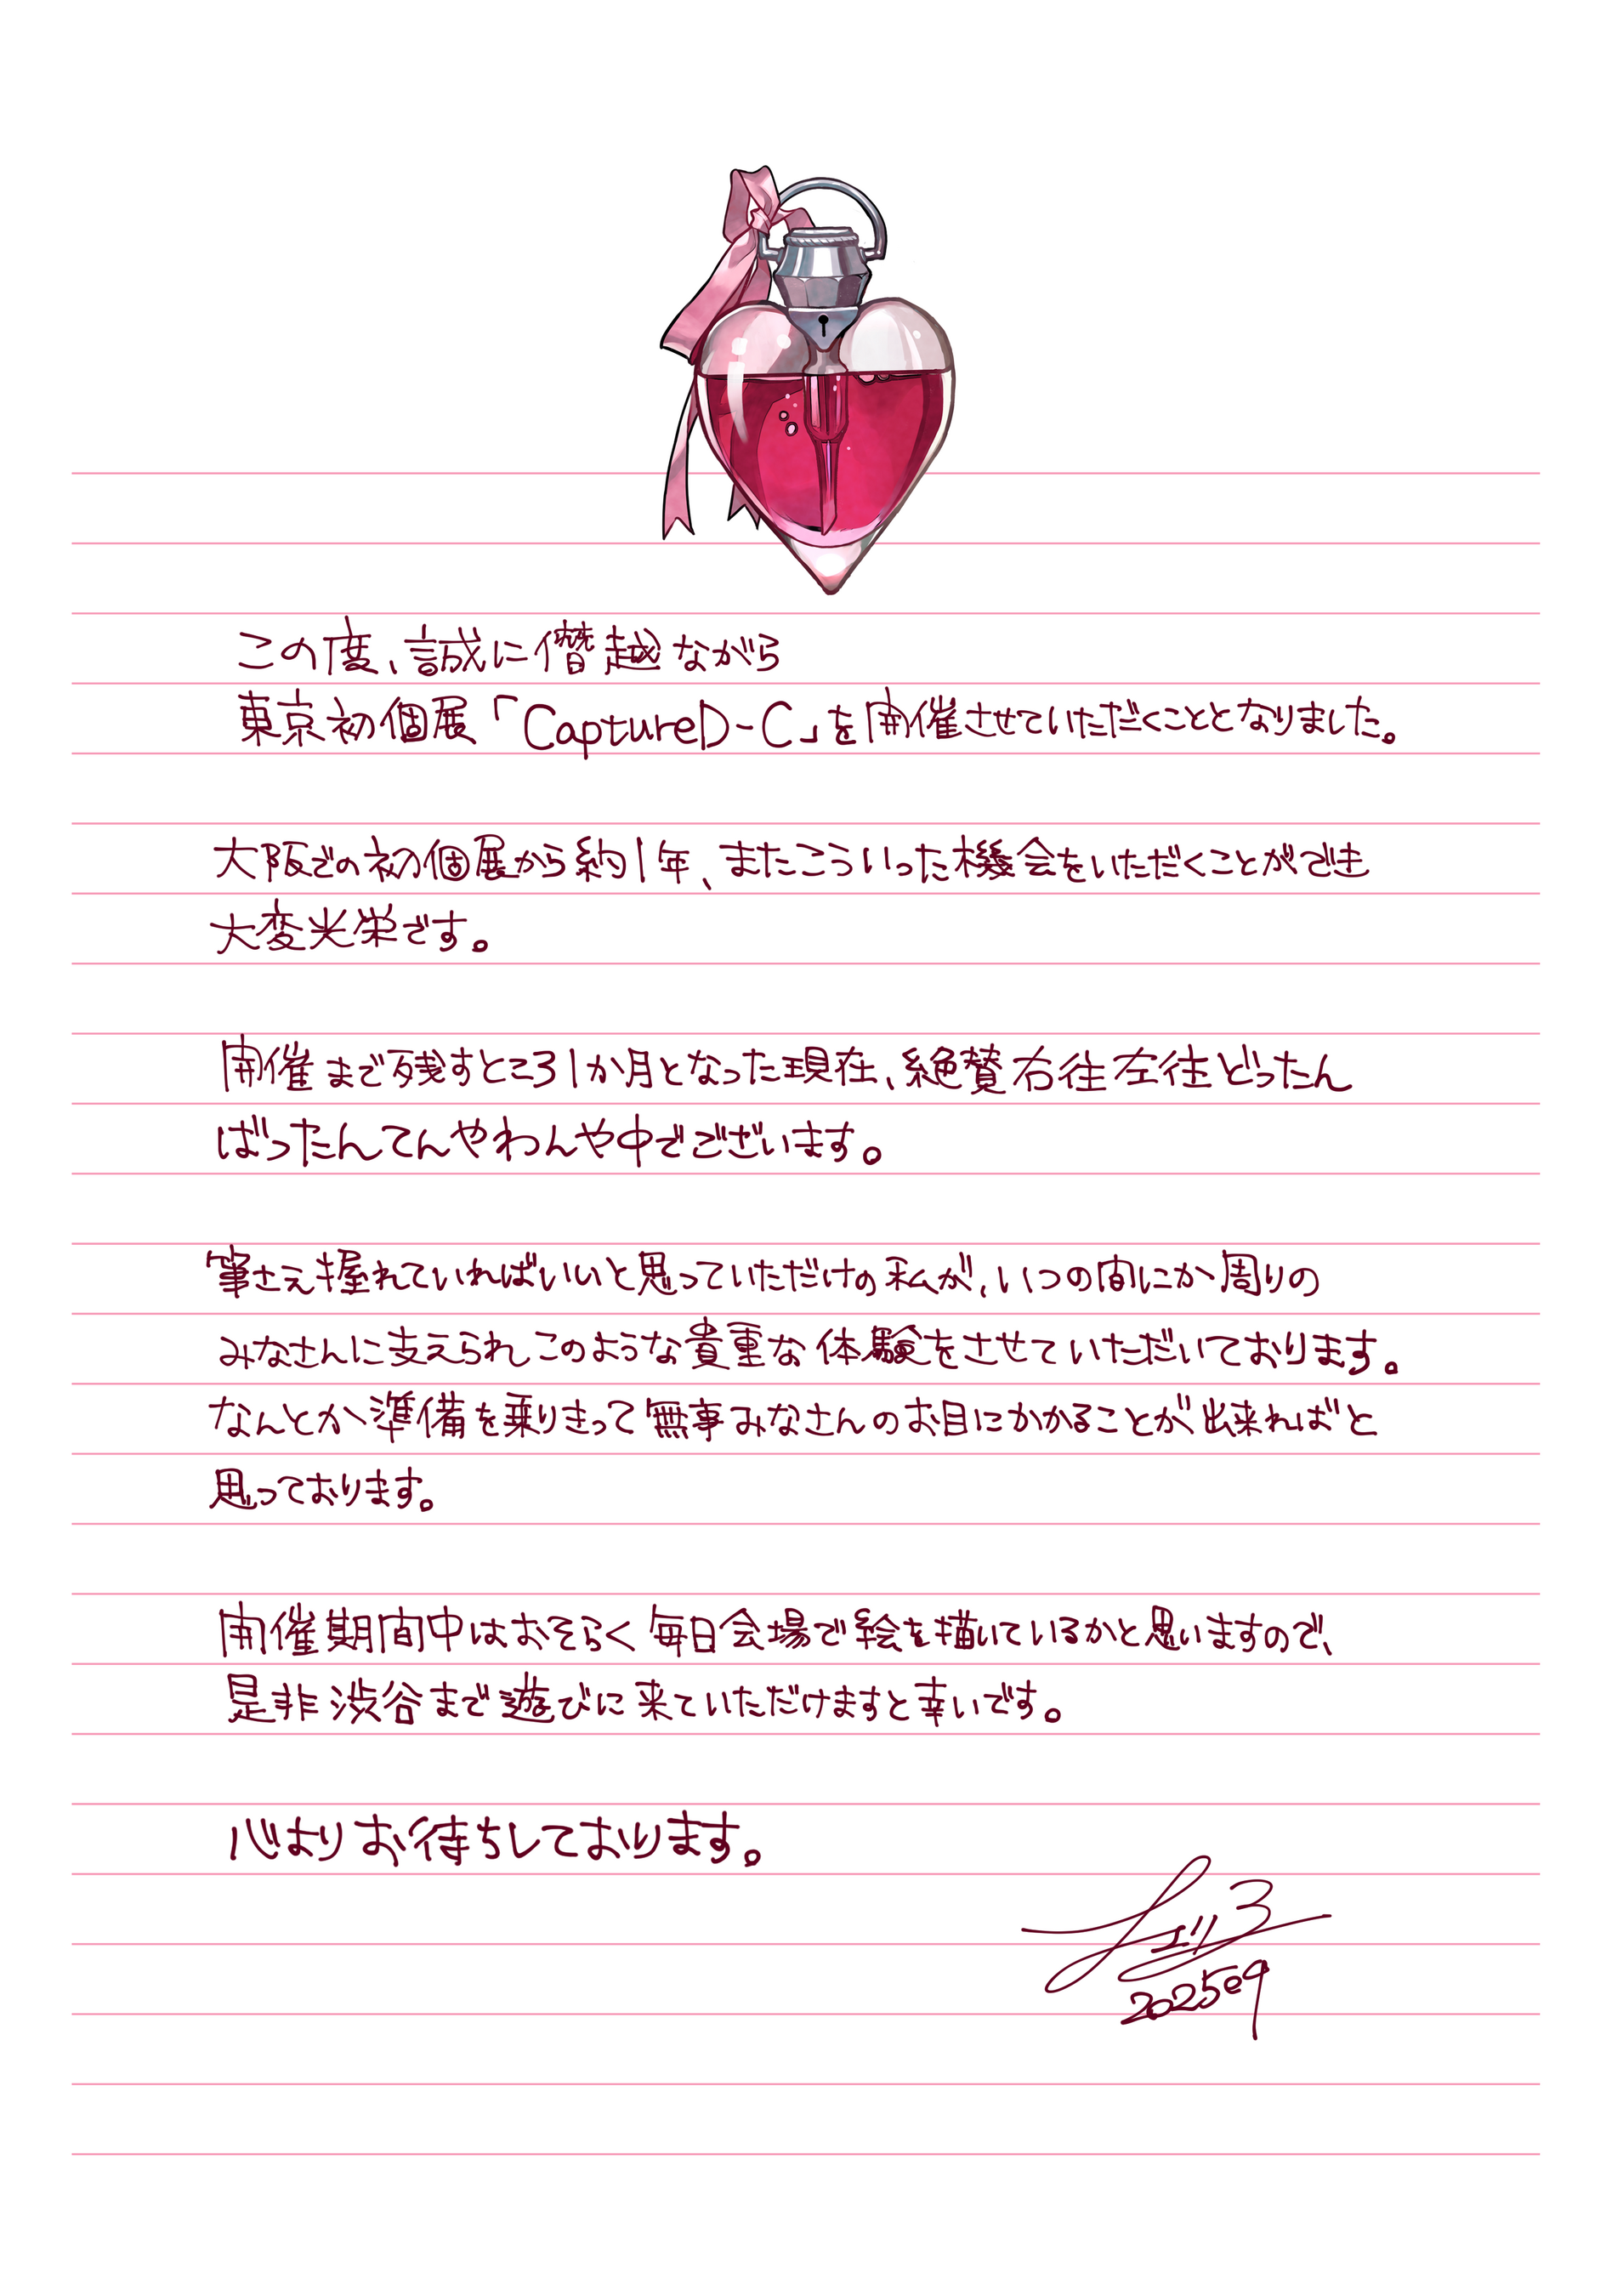 この度、誠に僭越ながら
東京初個展「CaptureD-C」を開催させていただくこととなりました。
大阪での初個展から約1年、またこういった機会をいただくことができ
大変光栄です。
開催まで残すところ1か月となった現在、絶賛右往左往どったん
ばったんてんやわんや中でございます。
筆さえ握れていればいいと思っていただけの私が、いつの間にか周りの
みなさんに支えられこのような貴重な体験をさせていただいております。
なんとか準備を乗りきって無事みなさんのお目にかかることが出来ればと
思っております。
開催期間中はおそらく毎日会場で絵を描いているかと思いますので、
是非渋谷まで遊びに来ていただけますと幸いです。
心よりお待ちしております。